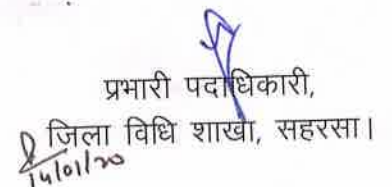 प्रभारी पदाधिकारी,
जिला विधि शाखा, सहरसा।
14/01/20